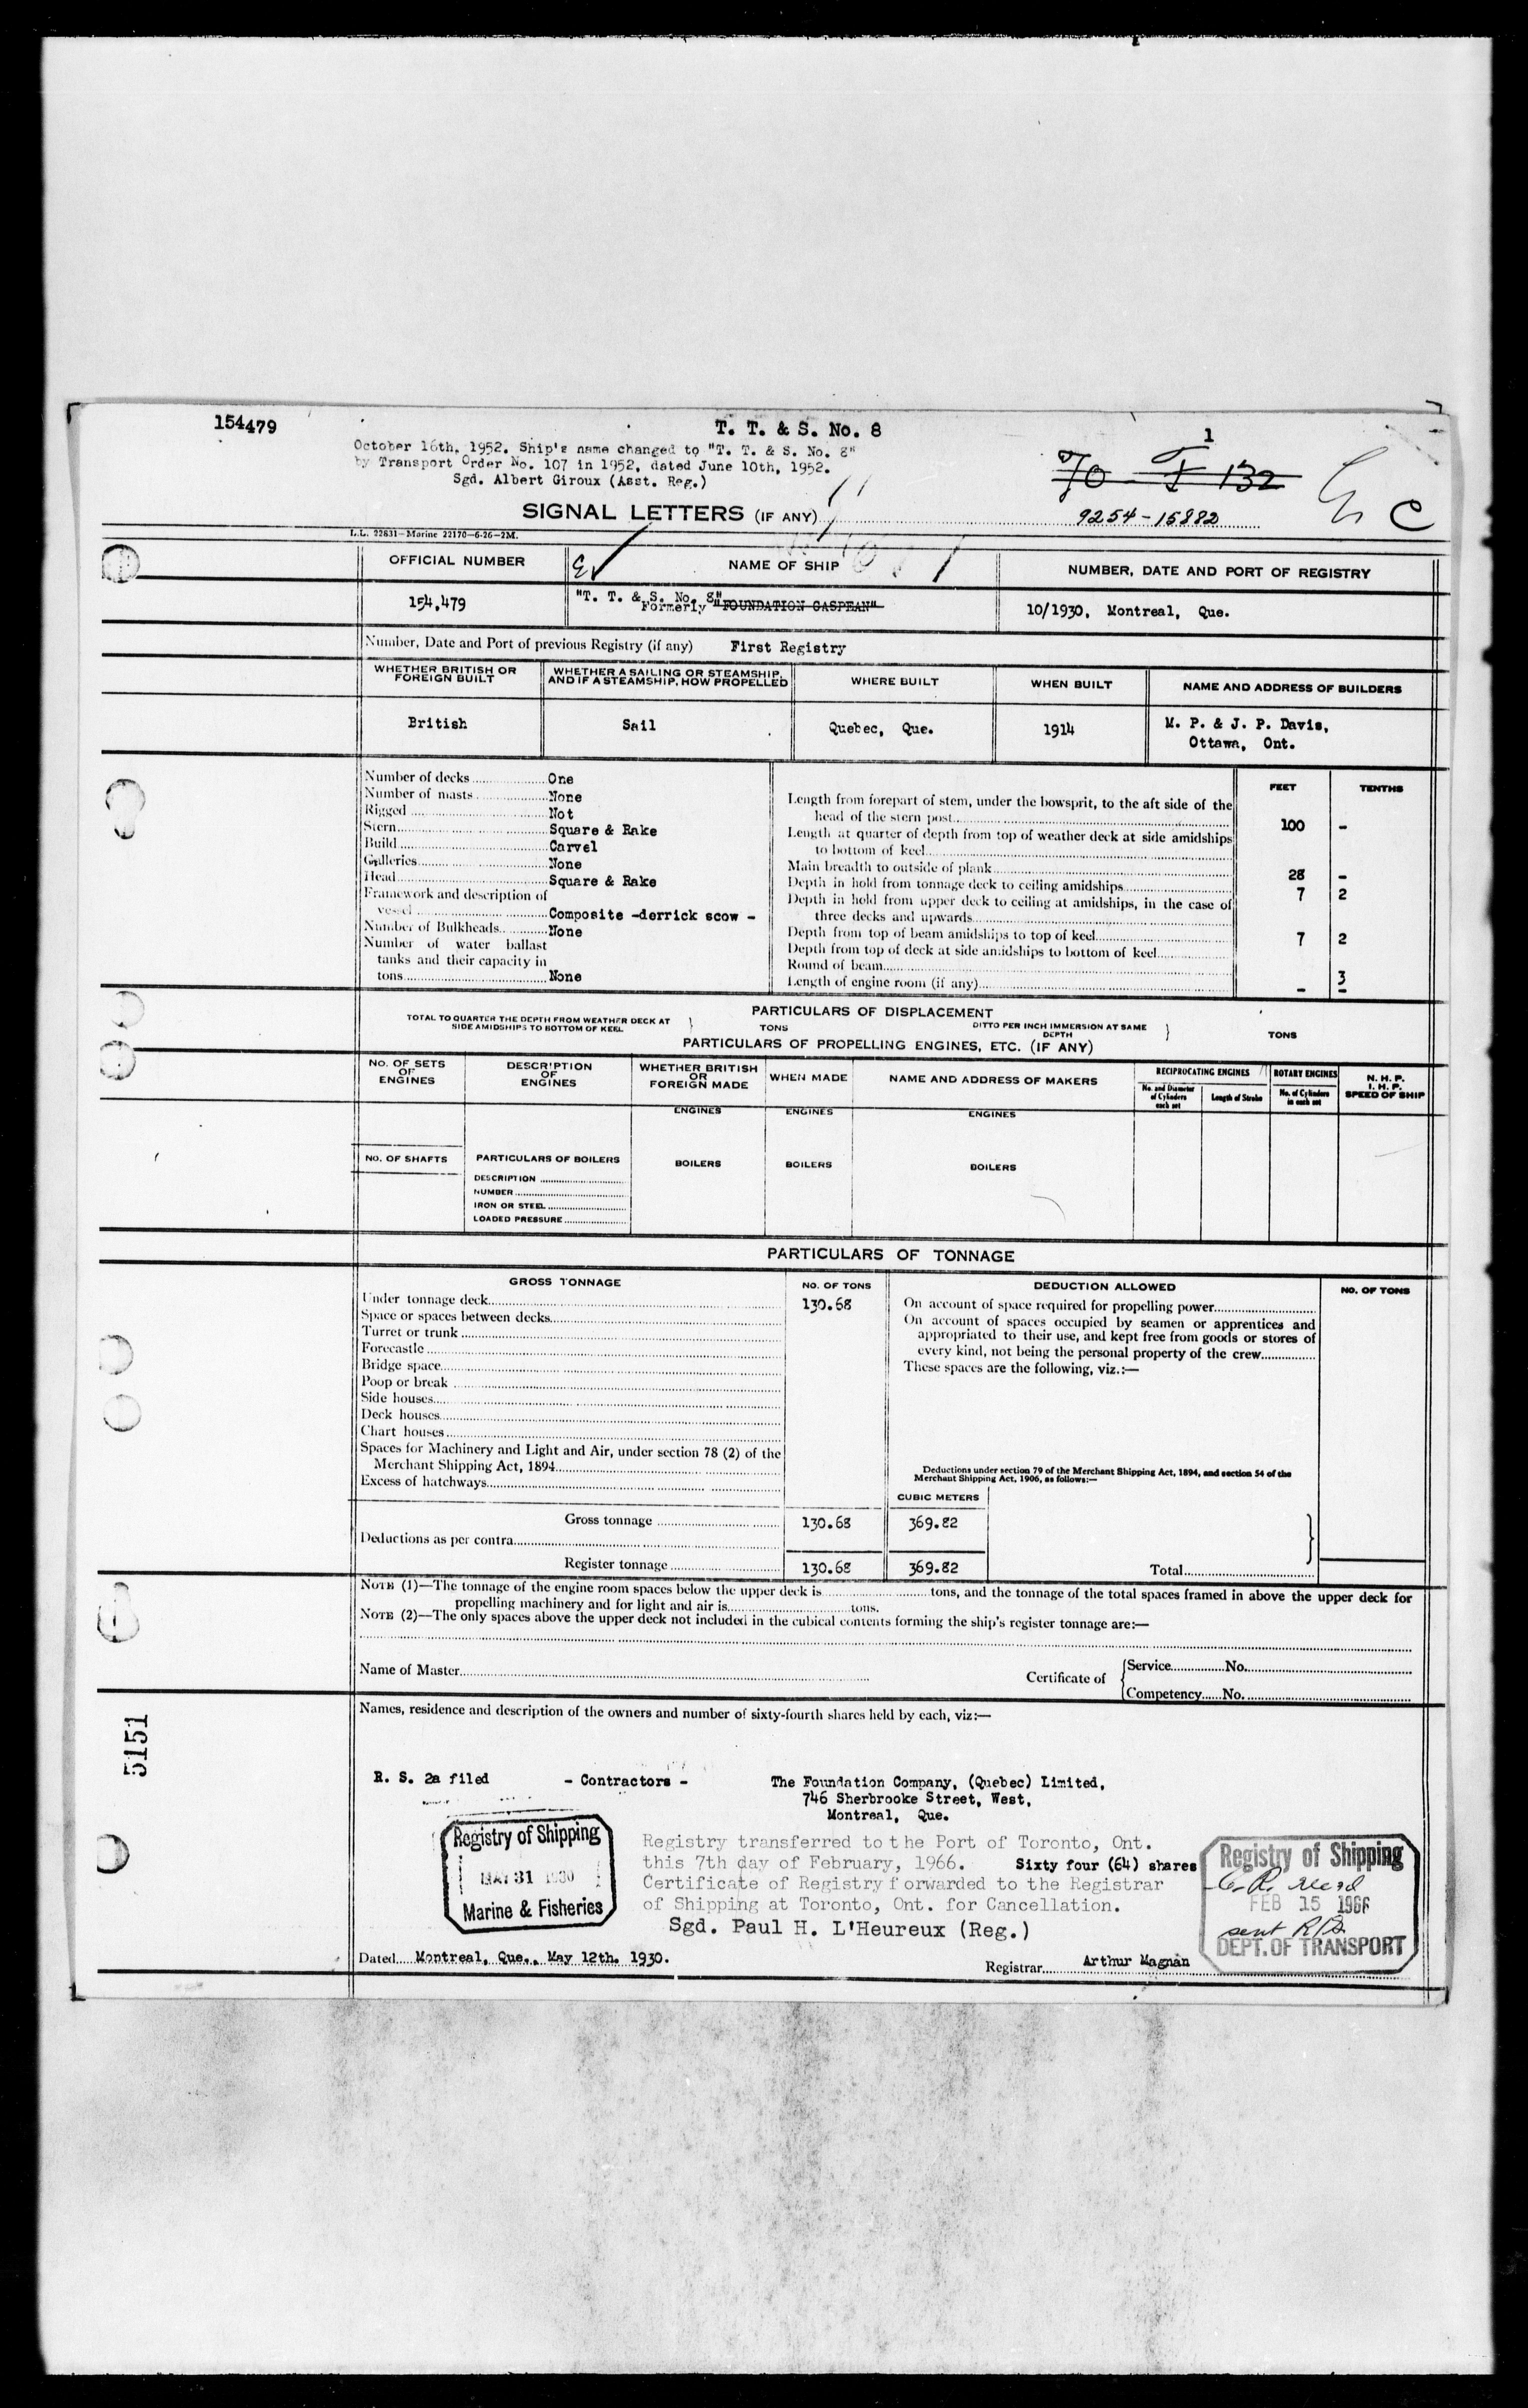 154479
T. T. & S. No. 8
1
October 16th, 1952. Ship's name changed to "T. T. & S. No. 8"
by Transport Order No. 107 in 1952, dated June 10th, 1952.
Sgd. Albert Giroux (Asst. Reg.)
132
SIGNAL LETTERS (IF ANY)
9254-15882
C
L.L. 22831—Marine 22170—6-26—2M.
OFFICIAL NUMBER
NAME OF SHIP
NUMBER, DATE AND PORT OF REGISTRY
154,479
"T. T. & S. No. 8"
Formerly "FOUNDATION GASPEAN"
10/1930, Montreal, Que.
Number, Date and Port of previous Registry (if any) First Registry
WHETHER BRITISH OR FOREIGN BUILT
WHETHER A SAILING OR STEAMSHIP, AND IF A STEAMSHIP, HOW PROPELLED
WHERE BUILT
WHEN BUILT
NAME AND ADDRESS OF BUILDERS
British
Sail
Quebec, Que.
1914
M. P. & J. P. Davis,
Ottawa, Ont.
Number of decks One
Number of masts None
Rigged Not
Stern Square & Rake
Build Carvel
Galleries None
Head Square & Rake
Framework and description of
vessel Composite -derrick scow -
Number of Bulkheads None
Number of water ballast
tanks and their capacity in
tons None
FEET TENTHS
Length from forepart of stem, under the bowsprit, to the aft side of the
head of the stern post 100 -
Length at quarter of depth from top of weather deck at side amidships
to bottom of keel
Main breadth to outside of plank 28 -
Depth in hold from tonnage deck to ceiling amidships 7 2
Depth in hold from upper deck to ceiling at amidships, in the case of
three decks and upwards
Depth from top of beam amidships to top of keel 7 2
Depth from top of deck at side amidships to bottom of keel
Round of beam 3
Length of engine room (if any) - -
PARTICULARS OF DISPLACEMENT
TOTAL TO QUARTER THE DEPTH FROM WEATHER DECK AT
SIDE AMIDSHIPS TO BOTTOM OF KEEL
TONS
DITTO PER INCH IMMERSION AT SAME
DEPTH
TONS
PARTICULARS OF PROPELLING ENGINES, ETC. (IF ANY)
NO. OF SETS OF ENGINES
DESCRIPTION OF ENGINES
WHETHER BRITISH OR FOREIGN MADE
WHEN MADE
NAME AND ADDRESS OF MAKERS
RECIPROCATING ENGINES
No. and Diameter of Cylinders each set
Length of Stroke
ROTARY ENGINES
No. of Cylinders in each set
N. H. P.
I. H. P.
SPEED OF SHIP
ENGINES
ENGINES
ENGINES
NO. OF SHAFTS
PARTICULARS OF BOILERS
BOILERS
BOILERS
BOILERS
DESCRIPTION
NUMBER
IRON OR STEEL
LOADED PRESSURE
PARTICULARS OF TONNAGE
GROSS TONNAGE
NO. OF TONS
DEDUCTION ALLOWED
NO. OF TONS
Under tonnage deck 130.68
Space or spaces between decks
Turret or trunk
Forecastle
Bridge space
Poop or break
Side houses
Deck houses
Chart houses
Spaces for Machinery and Light and Air, under section 78 (2) of the
Merchant Shipping Act, 1894
Excess of hatchways
On account of space required for propelling power
On account of spaces occupied by seamen or apprentices and
appropriated to their use, and kept free from goods or stores of
every kind, not being the personal property of the crew
These spaces are the following, viz.:—
Deductions under section 79 of the Merchant Shipping Act, 1894, and section 54 of the
Merchant Shipping Act, 1906, as follows:—
CUBIC METERS
Gross tonnage 130.68 369.82
Deductions as per contra
Register tonnage 130.68 369.82
Total
NOTE (1)—The tonnage of the engine room spaces below the upper deck is tons, and the tonnage of the total spaces framed in above the upper deck for
propelling machinery and for light and air is tons.
NOTE (2)—The only spaces above the upper deck not included in the cubical contents forming the ship's register tonnage are:—
Name of Master
Certificate of
Service No.
Competency No.
Names, residence and description of the owners and number of sixty-fourth shares held by each, viz:—
5151
R. S. 2a filed - Contractors - The Foundation Company, (Quebec) Limited,
746 Sherbrooke Street, West,
Montreal, Que.
Registry of Shipping
MAY 31 1930
Marine & Fisheries
Registry transferred to the Port of Toronto, Ont.
this 7th day of February, 1966. Sixty four (64) shares
Certificate of Registry forwarded to the Registrar
of Shipping at Toronto, Ont. for Cancellation.
Sgd. Paul H. L'Heureux (Reg.)
Registry of Shipping
FEB 15 1966
sent
DEPT. OF TRANSPORT
Dated Montreal, Que., May 12th, 1930.
Registrar Arthur Magnan